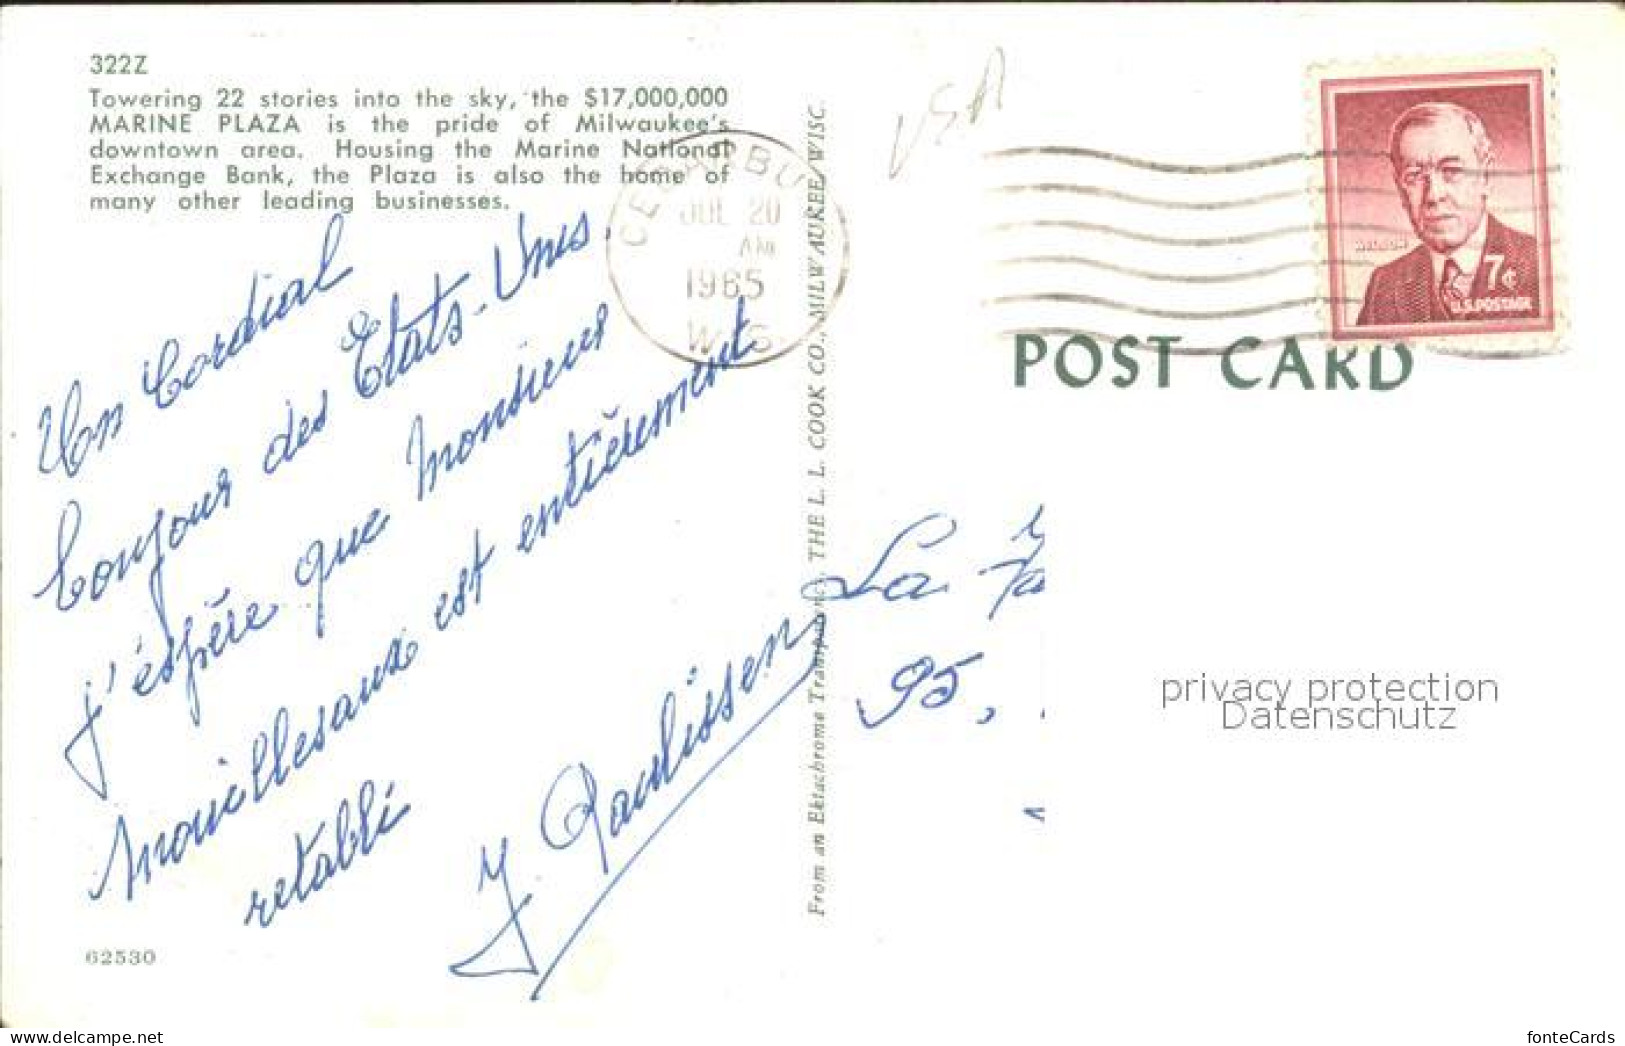 322Z
Towering 22 stories into the sky, the $17,000,000
MARINE PLAZA is the pride of Milwaukee's
downtown area. Housing the Marine National
Exchange Bank, the Plaza is also the home of
many other leading businesses.
Un Cordial
bonjour des Etats-Unis.
J'éspère que Monsieur
Mouillesaux est entièrement
retabli
62530
JUL 20
AM
1965
WIS
From an Ektachrome Transparency, THE L. L. COOK CO., MILWAUKEE, WISC.
USA
7¢
U.S. POSTAGE
POST CARD
La
95,
privacy protection
Datenschutz
www.delcampe.net
fonteCards